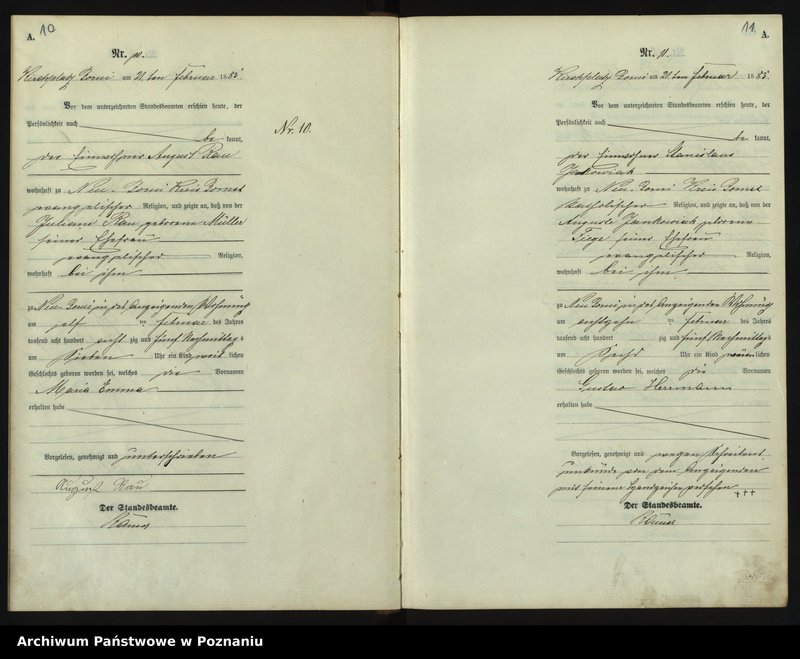 A.
10
Nr. 10.
am 21. ten Februar 1885.
Vor dem unterzeichneten Standesbeamten erschien heute, der
Persönlichkeit nach
be kannt,
der Einwohner August Rau
wohnhaft zu Neu-Pomi Kreis Bomst
evangelischer Religion, und zeigte an, daß von der
Juliane Rau geborene Müller
seiner Ehefrau
evangelischer Religion,
wohnhaft bei ihm
zu Neu-Pomi in des Anzeigenden Wohnung
am elf ten Februar des Jahres
tausend acht hundert acht zig und fünf Nachmittag s
um Sieben Uhr ein Kind weib lichen
Geschlechts geboren worden sei, welches die Vornamen
Maria Emma
erhalten habe
Vorgelesen, genehmigt und unterschrieben
August Rau
Der Standesbeamte.
Nr. 10.
11
A.
Nr. 11.
am 21. ten Februar 1885.
Vor dem unterzeichneten Standesbeamten erschien heute, der
Persönlichkeit nach
be kannt,
der Einwohner Stanislaus
Jankowiak
wohnhaft zu Neu-Pomi Kreis Bomst
katholischer Religion, und zeigte an, daß von der
Auguste Jankowiak geborene
Fiege seiner Ehefrau
evangelischer Religion,
wohnhaft bei ihm
zu Neu-Pomi in des Anzeigenden Wohnung
am achtzehn ten Februar des Jahres
tausend acht hundert zig und fünf Nachmittag s
um Sechs Uhr ein Kind männlichen
Geschlechts geboren worden sei, welches die Vornamen
Gustav Hermann
erhalten habe
Vorgelesen, genehmigt und wegen Schreibens
unkunde von dem Anzeigenden
mit seinem Handzeichen versehen
+++
Der Standesbeamte.
Archiwum Państwowe w Poznaniu